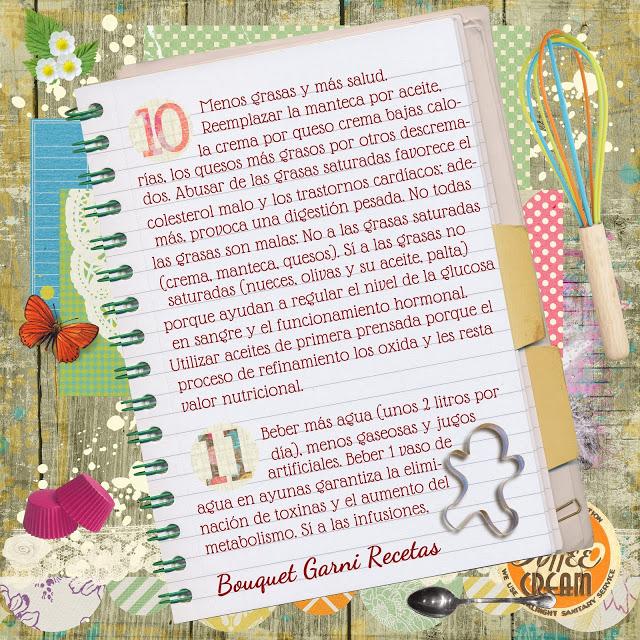 10 Menos grasas y más salud.
Reemplazar la manteca por aceite,
la crema por queso crema bajas calo-
rías, los quesos más grasos por otros descrema-
dos. Abusar de las grasas saturadas favorece el
colesterol malo y los trastornos cardíacos; ade-
más, provoca una digestión pesada. No todas
las grasas son malas: No a las grasas saturadas
(crema, manteca, quesos). Sí a las grasas no
saturadas (nueces, olivas y su aceite, palta)
porque ayudan a regular el nivel de la glucosa
en sangre y el funcionamiento hormonal.
Utilizar aceites de primera prensada porque el
proceso de refinamiento los oxida y les resta
valor nutricional.
11 Beber más agua (unos 2 litros por
día), menos gaseosas y jugos
artificiales. Beber 1 vaso de
agua en ayunas garantiza la elimi-
nación de toxinas y el aumento del
metabolismo. Sí a las infusiones.
Bouquet Garni Recetas
CREAM
SANITARY SERVICE